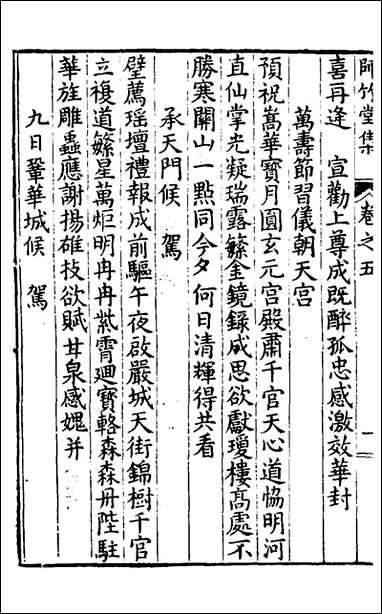 師竹堂集 卷之五 一
喜再逢 宣勸上尊成既醉孤忠感激效華封
萬壽節習儀朝天宮
預祝嵩華寶月圓玄元宮殿肅千官天心道協明河
直仙掌光凝瑞露繁金鏡錄成思欲獻瓊樓高處不
勝寒關山一點同今夕何日清輝得共看
承天門候 駕
壁薦瑶壇禮報成前驅午夜啟嚴城天街錦樹千官
立複道繁星萬炬明冉冉紫霄廻寶輅森森丹陛駐
華旌雕蟲應謝揚雄技欲賦甘泉感媿并
九日鞏華城候 駕